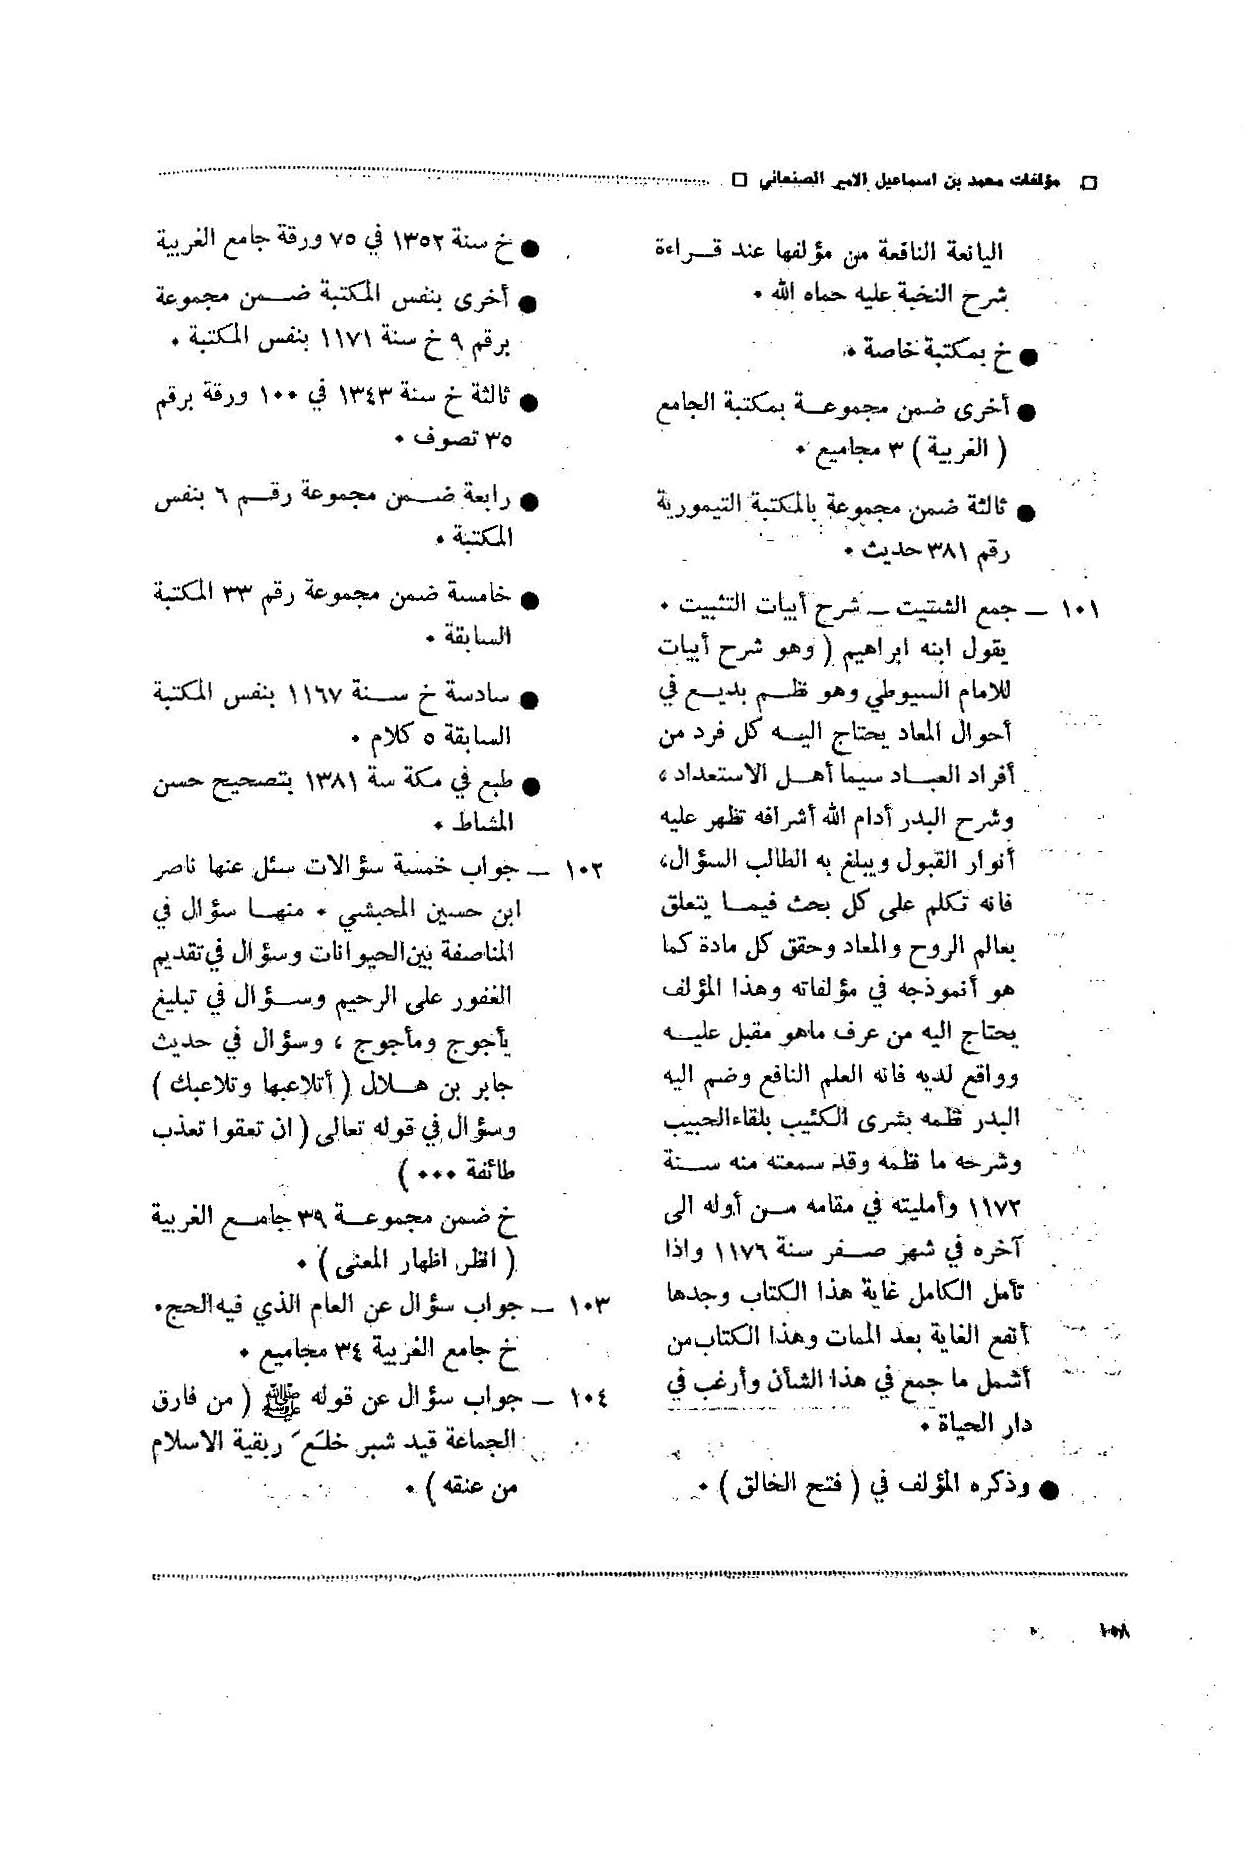 □ مؤلفات محمد بن اسماعيل الامير الصنعاني □
اليانعة النافعة من مؤلفها عند قـراءة
شرح النخبة عليه حماه الله .
● خ بمكتبة خاصة .
● أخرى ضمن مجموعـة بمكتبة الجامع
( الغربية ) ٣ مجاميع .
● ثالثة ضمن مجموعة بالمكتبة التيمورية
رقم ٣٨١ حديث .
١٠١ – جمع الشتيت – شرح أبيات التثبيت .
يقول ابنه ابراهيم ( وهو شرح أبيات
للامام السيوطي وهو نظـم بديـع في
أحوال المعاد يحتاج اليـه كل فرد من
أفراد العبـاد سيما أهـل الاستعداد ،
وشرح البدر أدام الله أشرافه تظهر عليه
أنوار القبول ويبلغ به الطالب السؤال،
فانه تكلم على كل بحث فيمـا يتعلق
بعالم الروح والمعاد وحقق كل مادة كما
هو أنموذجه في مؤلفاته وهذا المؤلف
يحتاج اليه من عرف ماهو مقبل عليـه
وواقع لديه فانه العلم النافع وضم اليه
البدر نظمه بشرى الكئيب بلقاء الحبيب
وشرحه ما نظمه وقد سمعته منه سـنة
١١٧٢ وأمليته في مقامه مـن أوله الى
آخره في شهر صـفر سنة ١١٧٦ واذا
تأمل الكامل غاية هذا الكتاب وجدها
أنفع الغاية بعد الممات وهذا الكتاب من
أشمل ما جمع في هذا الشأن وأرغب في
دار الحياة .
● وذكره المؤلف في ( فتح الخالق ) .
● خ سنة ١٣٥٢ في ٧٥ ورقة جامع الغربية
● أخرى بنفس المكتبة ضـمن مجموعة
برقم ٩ خ سنة ١١٧١ بنفس المكتبة .
● ثالثة خ سنة ١٣٤٣ في ١٠٠ ورقة برقم
٣٥ تصوف .
● رابعة ضـمن مجموعة رقـم ٦ بنفس
المكتبة .
● خامسة ضمن مجموعة رقم ٣٣ المكتبة
السابقة .
● سادسة خ سـنة ١١٦٧ بنفس المكتبة
السابقة ٥ كلام .
● طبع في مكة سة ١٣٨١ بتصحيح حسن
المشاط .
١٠٢ – جواب خمسة سؤالات سئل عنها ناصر
ابن حسين المحبشي . منهـا سؤال في
المناصفة بين الحيوانات وسؤال في تقديم
الغفور على الرحيم وسـؤال في تبليغ
يأجوج ومأجوج ، وسؤال في حديث
جابر بن هـلال ( أتلاعبها وتلاعبك )
وسؤال في قوله تعالى ( ان تعقوا تعذب
طائفة ... )
خ ضمن مجموعـة ٣٩ جامـع الغربية
( انظر اظهار المعنى ) .
١٠٣ – جواب سؤال عن العام الذي فيه الحج.
خ جامع الغربية ٣٤ مجاميع .
١٠٤ – جواب سؤال عن قوله ﷺ ( من فارق
الجماعة قيد شبر خلَعَ ربقية الاسلام
من عنقه ) .
١٥٨